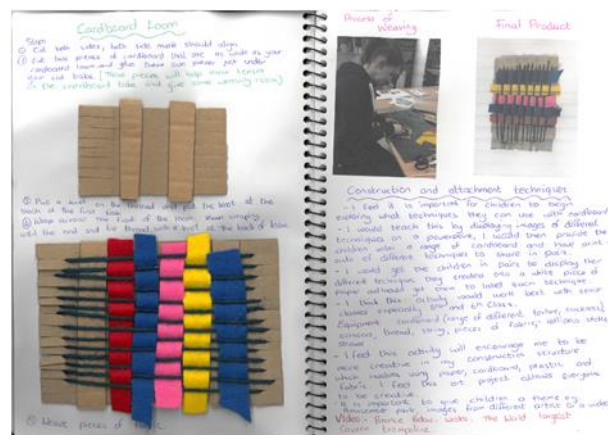 Cardboard Loom
Steps
① Cut both sides, both side marks should align
② Cut two pieces of cardboard that are as wide as your
cardboard loom and glue these two pieces just under
your cut tabs. (These pieces will help keep tension
in the cardboard tabs and give some weaving room)
③ Put a knot in the thread and put the knot at the
back of the first tab
④ Wrap across the front of the loom. Keep wrapping
until the end and tie thread with a knot at the back of loom
⑤ Weave pieces of fabric.
Process of
Weaving
Final Product
Construction and attachment techniques
- I feel it is important for children to begin
exploring what techniques they can use with cardboard
- I would teach this by displaying images of different
techniques on a powerpoint. I would then provide the
children with a range of cardboard and have print
outs of different techniques to share in pairs.
- I would get the children in pairs to display their
different technique they created onto a white piece of
paper and for them to label each technique.
- I think this activity would work best with senior
classes especially 5th and 6th class.
Equipment: cardboard (range of different texture, thickness)
scissors, thread, string, pieces of fabric, lollipop sticks
straws
- I feel this activity will encourage me to be
more creative in my construction structure
which involves using paper, cardboard, plastic and
fabric. I feel this art project allows everyone
to be creative.
It is important to give children a theme eg.
Amusement park, images from different artist or a video
Video - Bounce Below, Wales. The World largest
Cavern trampoline.